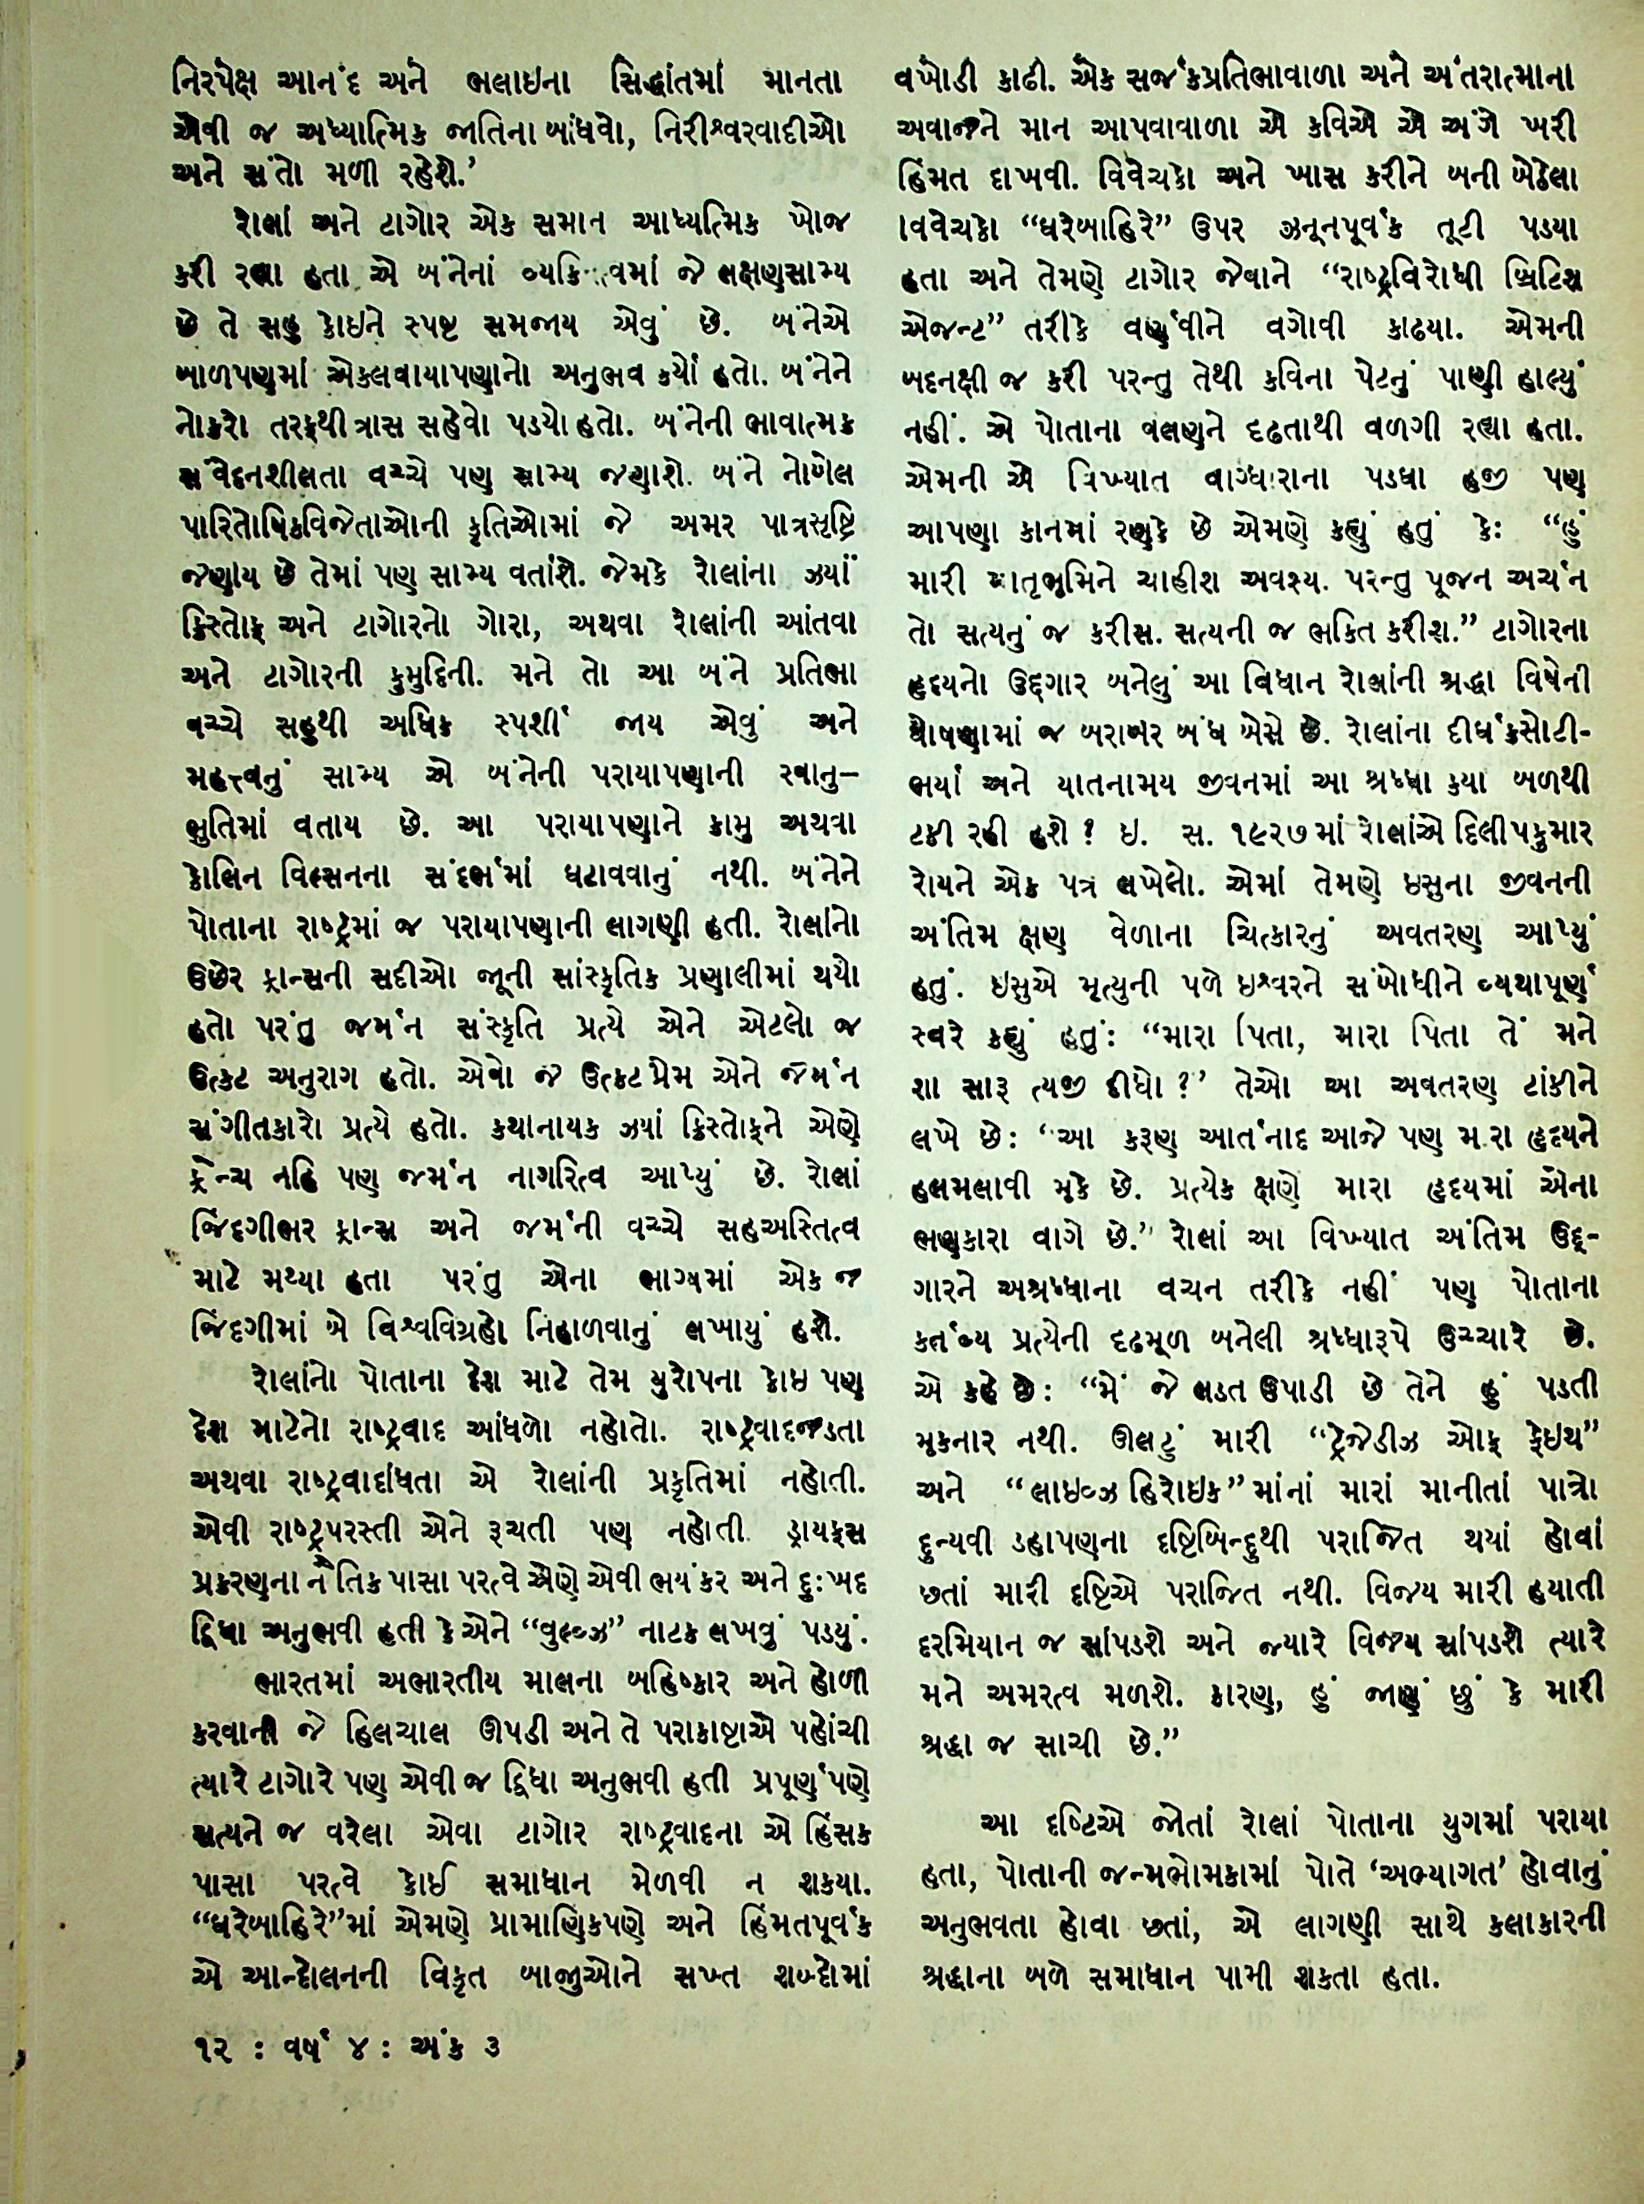 નિરપેક્ષ આનંદ અને ભલાઇના સિદ્ધાંતમાં માનતા
એવી જ અધ્યાત્મિક જાતિના બાંધવો, નિરીશ્વરવાદીઓ
અને સંતો મળી રહેશે.’
રોલાં અને ટાગોર એક સમાન આધ્યત્મિક ખોજ
કરી રહ્યા હતા એ બંનેનાં વ્યકિત્વમાં જે લક્ષણસામ્ય
છે તે સહુ કોઇને સ્પષ્ટ સમજાય એવું છે. બંનેએ
બાળપણમાં એકલવાયાપણાનો અનુભવ કર્યો હતો. બંનેને
નોકરો તરફથી ત્રાસ સહેવો પડયો હતો. બંનેની ભાવાત્મક
સંવેદનશીલતા વચ્ચે પણ સામ્ય જણાશે. બંને નોબેલ
પારિતોષિકવિજેતાઓની કૃતિઓમાં જે અમર પાત્રસૃષ્ટિ
જણાય છે તેમાં પણ સામ્ય વર્તાશે. જેમકે રોલાંના ઝયાં
ક્રિસ્તોફ અને ટાગોરનો ગોરા, અથવા રોલાંની આંતવા
અને ટાગોરની કુમુદિની. મને તો આ બંને પ્રતિભા
વચ્ચે સહુથી અધિક સ્પર્શી જાય એવું અને
મહત્ત્વનું સામ્ય એ બંનેની પરાયાપણાની સ્વાનુ-
ભુતિમાં વર્તાય છે. આ પરાયાપણાને કામુ અથવા
કોલિન વિલ્સનના સંદર્ભમાં ઘટાવવાનું નથી. બંનેને
પોતાના રાષ્ટ્રમાં જ પરાયાપણાની લાગણી હતી. રોલાંનો
ઉછેર ફ્રાન્સની સદીઓ જૂની સાંસ્કૃતિક પ્રણાલીમાં થયો
હતો પરંતુ જર્મન સંસ્કૃતિ પ્રત્યે એને એટલો જ
ઉત્કટ અનુરાગ હતો. એવો જ ઉત્કટ પ્રેમ એને જર્મન
સંગીતકારો પ્રત્યે હતો. કથાનાયક ઝયાં ક્રિસ્તોફને એણે
ફ્રેન્ચ નહિ પણ જર્મન નાગરિત્વ આપ્યું છે. રોલાં
જિંદગીભર ફ્રાન્સ અને જર્મની વચ્ચે સહઅસ્તિત્વ
માટે મથ્યા હતા પરંતુ એના ભાગ્યમાં એક જ
જિંદગીમાં બે વિશ્વવિગ્રહો નિહાળવાનું લખાયું હશે.
રોલાંનો પોતાના દેશ માટે તેમ યુરોપના કોઇ પણ
દેશ માટેનો રાષ્ટ્રવાદ આંધળો નહોતો. રાષ્ટ્રવાદજડતા
અથવા રાષ્ટ્રવાદાંધતા એ રોલાંની પ્રકૃતિમાં નહોતી.
એવી રાષ્ટ્રપરસ્તી એને રૂચતી પણ નહોતી ડ્રાયફસ
પ્રકરણના નૈતિક પાસા પરત્વે એણે એવી ભયંકર અને દુઃખદ
દ્વિધા અનુભવી હતી કે એને “વુલ્વ્ઝ” નાટક લખવું પડયું.
ભારતમાં અભારતીય માલના બહિષ્કાર અને હોળી
કરવાની જે હિલચાલ ઊપડી અને તે પરાકાષ્ટાએ પહોંચી
ત્યારે ટાગોરે પણ એવી જ દ્વિધા અનુભવી હતી પ્રપૂર્ણપણે
સત્યને જ વરેલા એવા ટાગોર રાષ્ટ્રવાદના એ હિંસક
પાસા પરત્વે કોઈ સમાધાન મેળવી ન શકયા.
“ઘરેબાહિરે”માં એમણે પ્રામાણિકપણે અને હિંમતપૂર્વક
એ આન્દોલનની વિકૃત બાજુઓને સખ્ત શબ્દોમાં
૧૨ : વર્ષ ૪ : અંક ૩
વખોડી કાઢી. એક સર્જકપ્રતિભાવાળા અને અંતરાત્માના
અવાજને માન આપવાવાળા એ કવિએ એ અંગે ખરી
હિંમત દાખવી. વિવેચકો અને ખાસ કરીને બની બેઠેલા
વિવેચકો “ઘરેબાહિરે” ઉપર ઝનૂનપૂર્વક તૂટી પડયા
હતા અને તેમણે ટાગોર જેવાને “રાષ્ટ્રવિરોધી બ્રિટિશ
એજન્ટ” તરીકે વર્ણવીને વગોવી કાઢયા. એમની
બદનક્ષી જ કરી પરન્તુ તેથી કવિના પેટનું પાણી હાલ્યું
નહીં. એ પોતાના વલણને દૃઢતાથી વળગી રહ્યા હતા.
એમની એ વિખ્યાત વાગ્ધારાના પડઘા હજી પણ
આપણા કાનમાં રણકે છે એમણે કહ્યું હતું કે: “હું
મારી માતૃભૂમિને ચાહીશ અવશ્ય. પરન્તુ પૂજન અર્ચન
તો સત્યનું જ કરીસ. સત્યની જ ભકિત કરીશ.” ટાગોરના
હૃદયનો ઉદ્ગાર બનેલું આ વિધાન રોલાંની શ્રદ્ધા વિષેની
ઘોષણામાં જ બરાબર બંધ બેસે છે. રોલાંના દીર્ઘકસોટી-
ભર્યા અને યાતનામય જીવનમાં આ શ્રધ્ધા કયા બળથી
ટકી રહી હશે ? ઇ. સ. ૧૯૨૭ માં રોલાંએ દિલીપકુમાર
રોયને એક પત્ર લખેલો. એમાં તેમણે ઇસુના જીવનની
અંતિમ ક્ષણ વેળાના ચિત્કારનું અવતરણ આપ્યું
હતું. ઇસુએ મૃત્યુની પળે ઇશ્વરને સંબોધીને વ્યથાપૂર્ણ
સ્વરે કહ્યું હતું: “મારા પિતા, મારા પિતા તેં મને
શા સારૂ ત્યજી દીધો ?’ તેઓ આ અવતરણ ટાંકીને
લખે છે: ‘આ કરૂણ આર્તનાદ આજે પણ મારા હૃદયને
હલમલાવી મૂકે છે. પ્રત્યેક ક્ષણે મારા હૃદયમાં એના
ભણકારા વાગે છે.” રોલાં આ વિખ્યાત અંતિમ ઉદ્-
ગારને અશ્રધ્ધાના વચન તરીકે નહીં પણ પોતાના
કર્તવ્ય પ્રત્યેની દૃઢમૂળ બનેલી શ્રધ્ધારૂપે ઉચ્ચારે છે.
એ કહે છે: “મેં જે લડત ઉપાડી છે તેને હું પડતી
મૂકનાર નથી. ઊલટું મારી “ટ્રેજેડીઝ ઓફ ફેઇથ”
અને “લાઇવ્ઝ હિરોઇક”માંનાં મારાં માનીતાં પાત્રો
દુન્યવી ડહાપણના દૃષ્ટિબિન્દુથી પરાજિત થયાં હોવાં
છતાં મારી દૃષ્ટિએ પરાજિત નથી. વિજય મારી હયાતી
દરમિયાન જ સાંપડશે અને જ્યારે વિજય સાંપડશે ત્યારે
મને અમરત્વ મળશે. કારણ, હું જાણું છું કે મારી
શ્રદ્ધા જ સાચી છે.”
આ દૃષ્ટિએ જોતાં રોલાં પોતાના યુગમાં પરાયા
હતા, પોતાની જન્મભોમકામાં પોતે ‘અભ્યાગત’ હોવાનું
અનુભવતા હોવા છતાં, એ લાગણી સાથે કલાકારની
શ્રદ્ધાના બળે સમાધાન પામી શકતા હતા.